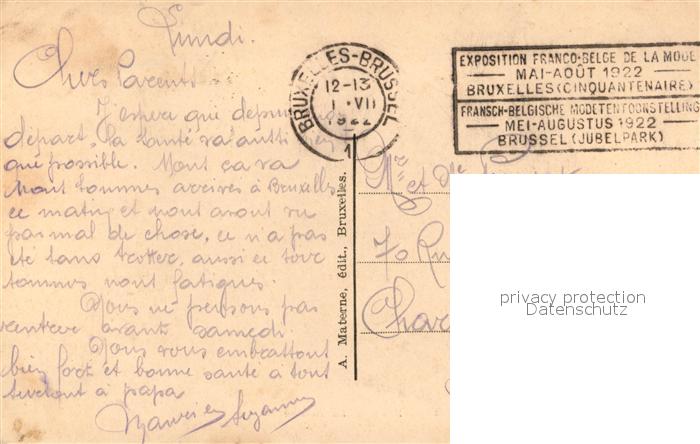 Lundi.
Chers Parents
J'espère que depuis
départ, la santé va aussi
que possible. Nous ça va
Nous sommes arrivés à Bruxelles
ce matin et nous avons vu
pas mal de chose, ce n'a pas
été sans trotter, aussi ce soir
sommes nous fatigués.
Nous ne pensons pas
rentrer avant samedi.
Nous vous embrassons
bien fort et bonne santé à tous
surtout à papa
Suzanne
BRUXELLES-BRUSSEL
12-13
1 VII
1922
1
EXPOSITION FRANCO-BELGE DE LA MODE
MAI-AOÛT 1922
BRUXELLES (CINQUANTENAIRE)
FRANSCH-BELGISCHE MODETENTOONSTELLING
MEI-AUGUSTUS 1922
BRUSSEL (JUBELPARK)
A. Materne, édit., Bruxelles.
Mr et Mme
70 Ru
Char
privacy protection
Datenschutz